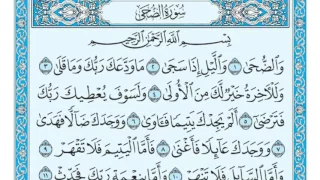 سُورَةُ الضُّحَى
بِسْمِ اللَّهِ الرَّحْمَٰنِ الرَّحِيمِ
وَالضُّحَىٰ ١ وَالَّيْلِ إِذَا سَجَىٰ ٢ مَا وَدَّعَكَ رَبُّكَ وَمَا قَلَىٰ ٣
وَلَلْآخِرَةُ خَيْرٌ لَّكَ مِنَ الْأُولَىٰ ٤ وَلَسَوْفَ يُعْطِيكَ رَبُّكَ
فَتَرْضَىٰ ٥ أَلَمْ يَجِدْكَ يَتِيمًا فَآوَىٰ ٦ وَوَجَدَكَ ضَالًّا فَهَدَىٰ
٧ وَوَجَدَكَ عَائِلًا فَأَغْنَىٰ ٨ فَأَمَّا الْيَتِيمَ فَلَا تَقْهَرْ
٩ وَأَمَّا السَّائِلَ فَلَا تَنْهَرْ ١٠ وَأَمَّا بِنِعْمَةِ رَبِّكَ فَحَدِّثْ ١١